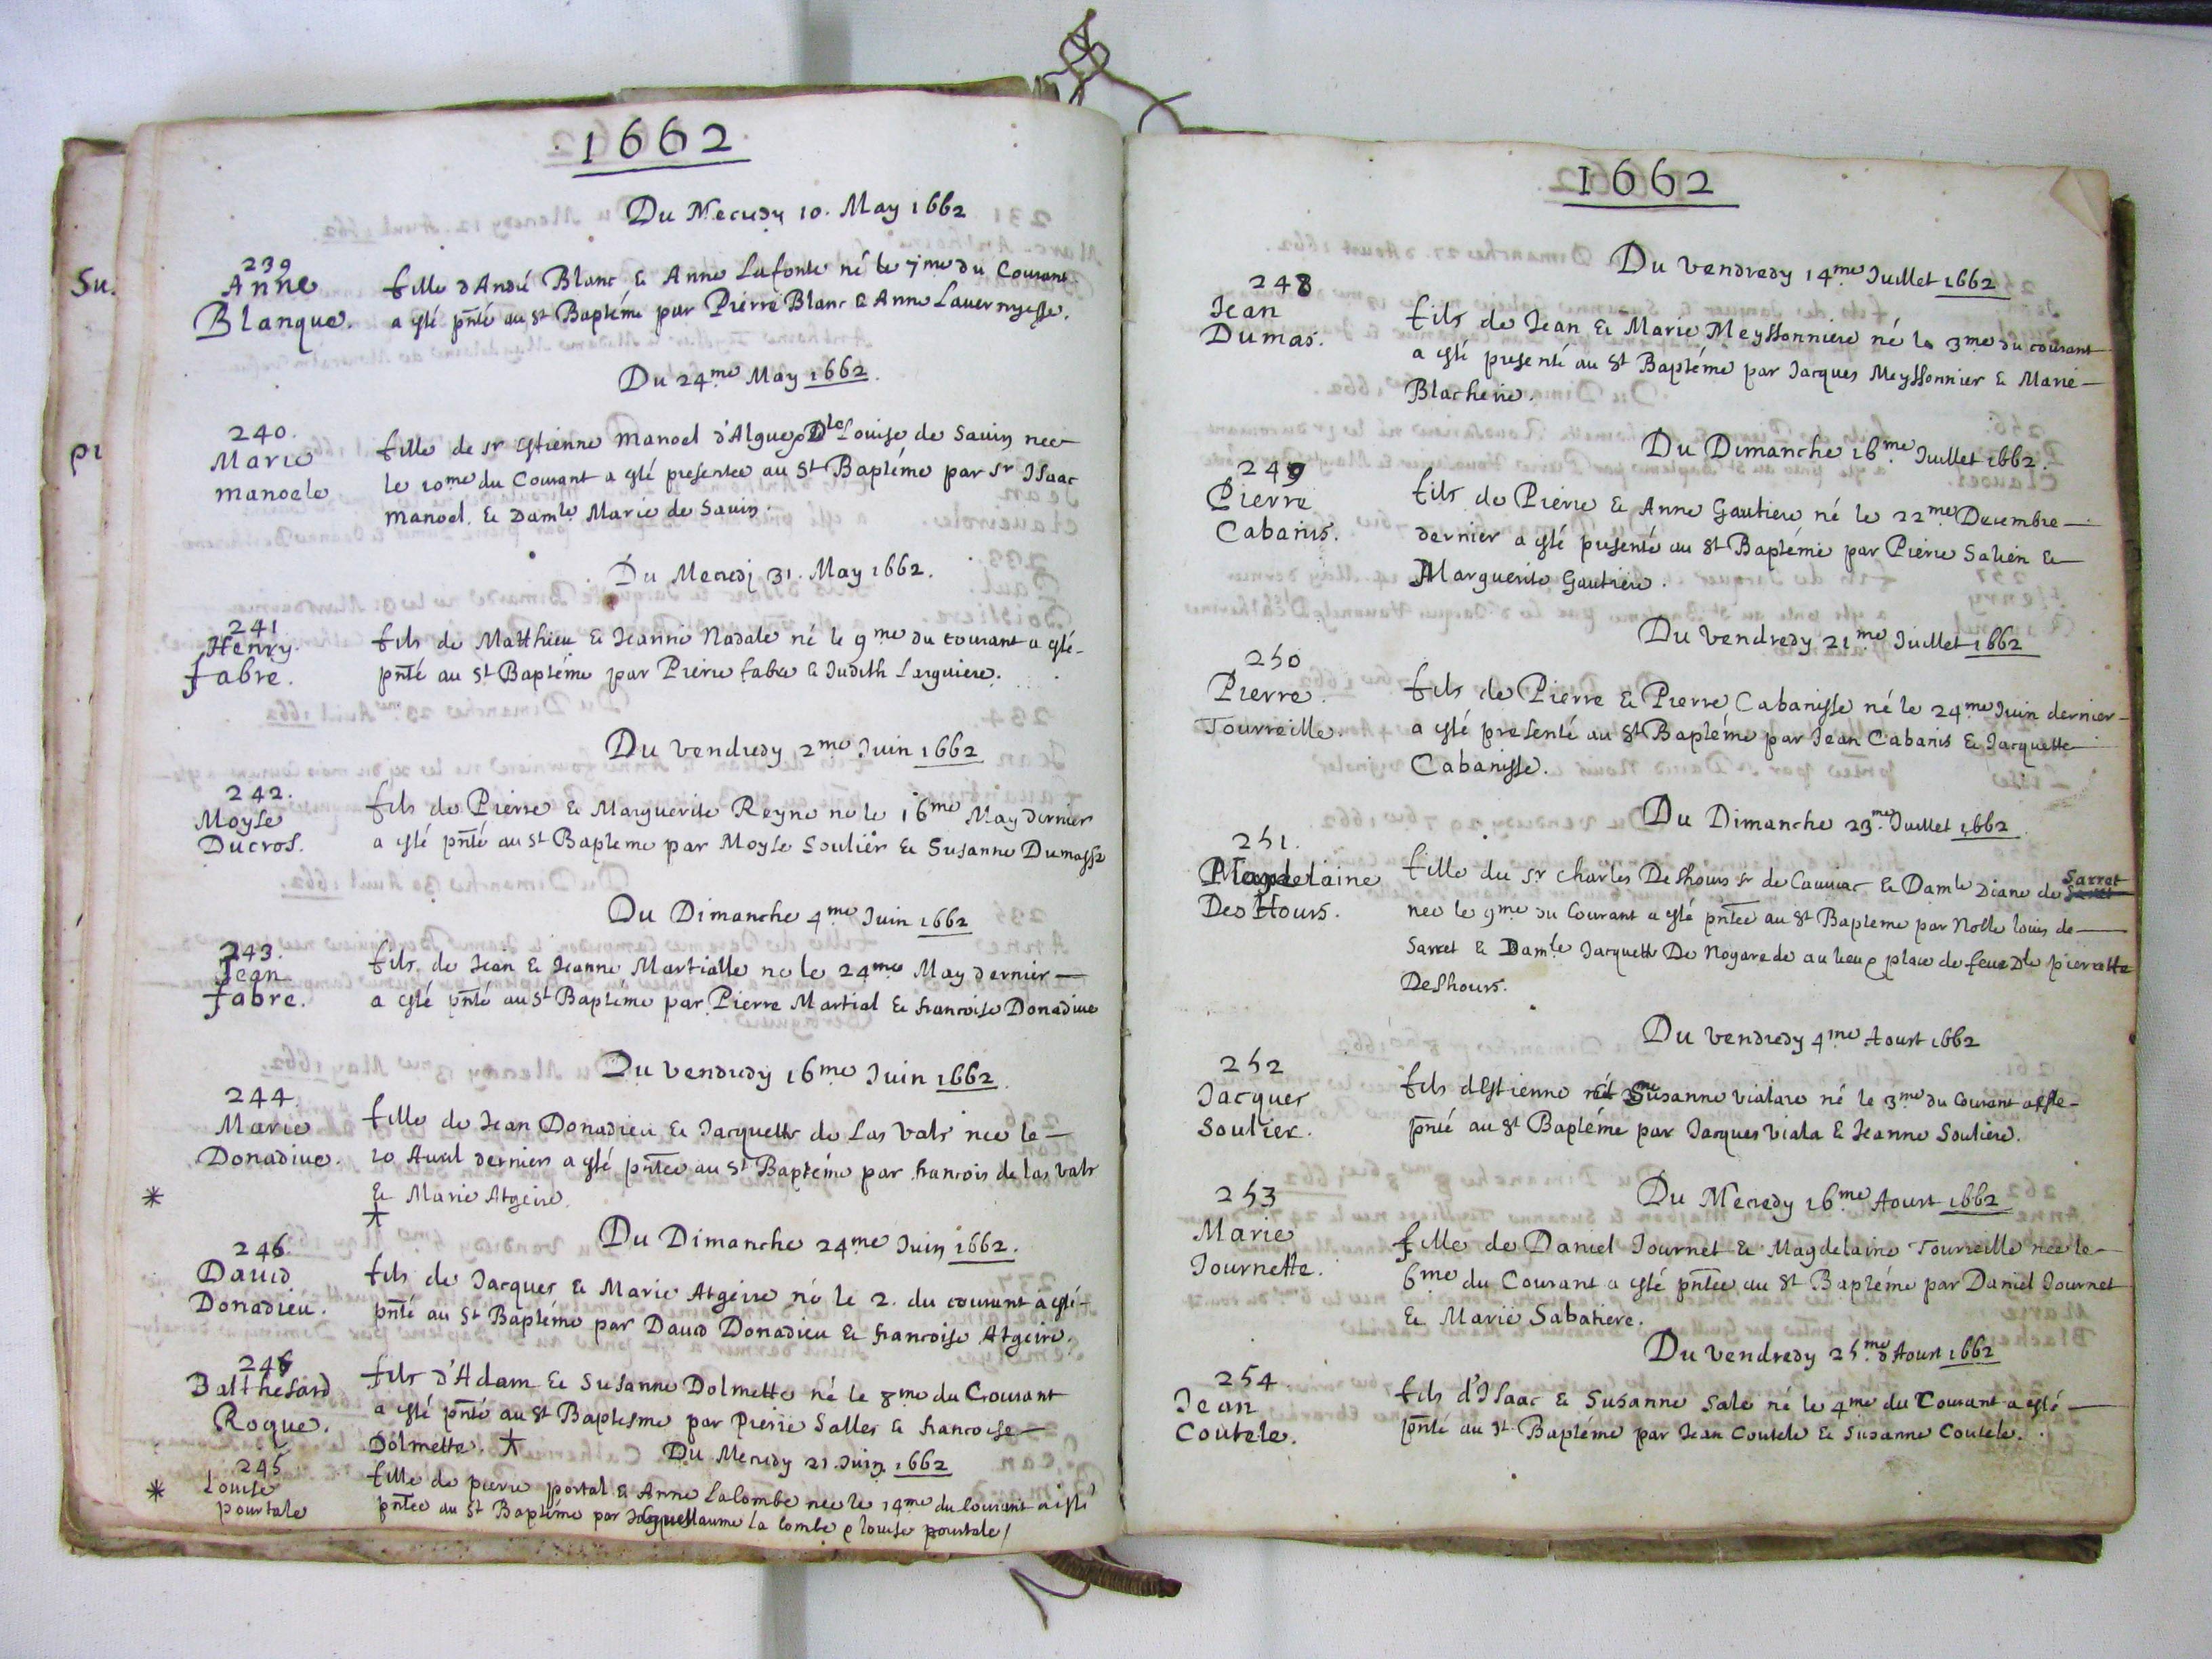 1662.
Du Mecredy 10. May 1662
239
Anne
Blanque.
fille d'André Blanc & Anne Lafonte né le 7me du Courant
a esté pnté au St Baptéme par Pierre Blanc & Anne Lauernyesse.
Du 24me May 1662.
240.
Marie
manoele
fille de sr Estienne manoel d'Algue & Dlle Louise de Sauin nee
le 10me du Courant a esté presentee au St Baptéme par sr Isaac
manoel. & Damle Marie de Sauin.
Du Mecredj 31. May 1662.
241
Henry.
fabre.
fils de Matthieu & Jeanne Nadale né le 9me du courant a esté
pnté au St Baptéme par Pierre fabre & Judith Larguiere.
Du vendredy 2me Juin 1662
242.
Moyse
Ducros.
fils de Pierre & Marguerite Reyne né le 16me May dernier
a esté pnté au St Bapteme par Moyse Soulier & Susanne Dumasse
Du Dimanche 4me Juin 1662
243.
Jean
fabre.
fils de Jean & Jeanne Martialle né le 24me May dernier
a esté pnté au St Baptéme par Pierre Martial & francoise Donadiue
Du vendredy 16me Juin 1662
244.
Marie
Donadiue.
fille de Jean Donadieu & Jacquette de Las Vals nee le
20 Auril dernier a esté pntée au St Baptéme par francois de las Vals
& Marie Atgeire.
Du Dimanche 24me Juin 1662.
246
Dauid
Donadieu.
fils de Jacques & Marie Atgeire né le 2. du courant a esté
pnté au St Baptéme par Dauid Donadieu & francoise Atgeire.
Balthesard
Roque.
fils d'Adam & Susanne Dolmette né le 8me du Courant
a esté pnté au St Baptesme par Pierre Salles & francoise
Dolmette.
Du Mecredy 21. Juin. 1662
245
Louise
pourtale
fille de pierre portal & Anne Lalombe nee le 14me du Courant a esté
pntee au St Baptéme par la combe & louise pourtale
Su.
pi
1662
Du vendredy 14me Juillet 1662
248
Jean
Dumas.
fils de Jean & Marie Meyssonniere né le 3me du courant
a esté presenté au St Baptéme par Jacques Meyssonnier & Marie
Blacheire.
Du Dimanche 16me Juillet 1662.
249
Pierre
Cabanis.
fils de Pierre & Anne Gautiere né le 22me Decembre
dernier a esté presenté au St Baptéme par Pierre Salien &
Marguerite Gautiere.
Du vendredy 21me Juillet 1662
250
Pierre.
Tourreille.
fils de Pierre & Pierre Cabanisse né le 24me Juin dernier
a esté presenté au St Baptéme par Jean Cabanis & Jacquette
Cabanisse.
Du Dimanche 23me Juillet 1662
251.
Magdelaine
Des Hours.
fille du sr charles Deshours sr de Cauuiac & Damle Diane de Sarret
nee le 9me du Courant a esté pntee au St Bapteme par Nolle louis de
Sarret & Damle Jacquette De Nogarede au lieu & place de feue Dle pierrette
Deshours.
Du vendredy 4me Aoust 1662
252
Jacques
Soulier.
fils d'Estienne & Susanne Vialare né le 3me du Courant a esté
pnté au St Baptéme par Jacques Viala & Jeanne Souliere.
Du Mecredy 16me Aoust 1662
253
Marie
Journette.
fille de Daniel Journet & Magdelaine Tourreille nee le
6me du Courant a esté pntee au St Baptéme par Daniel Journet
& Marie Sabatiere.
Du vendredy 25me d'Aoust 1662
254.
Jean
Coutele.
fils d'Isaac & Susanne Sale né le 4me du Courant a esté
pnté au St Baptéme par Jean Coutele & Susanne Coutele.